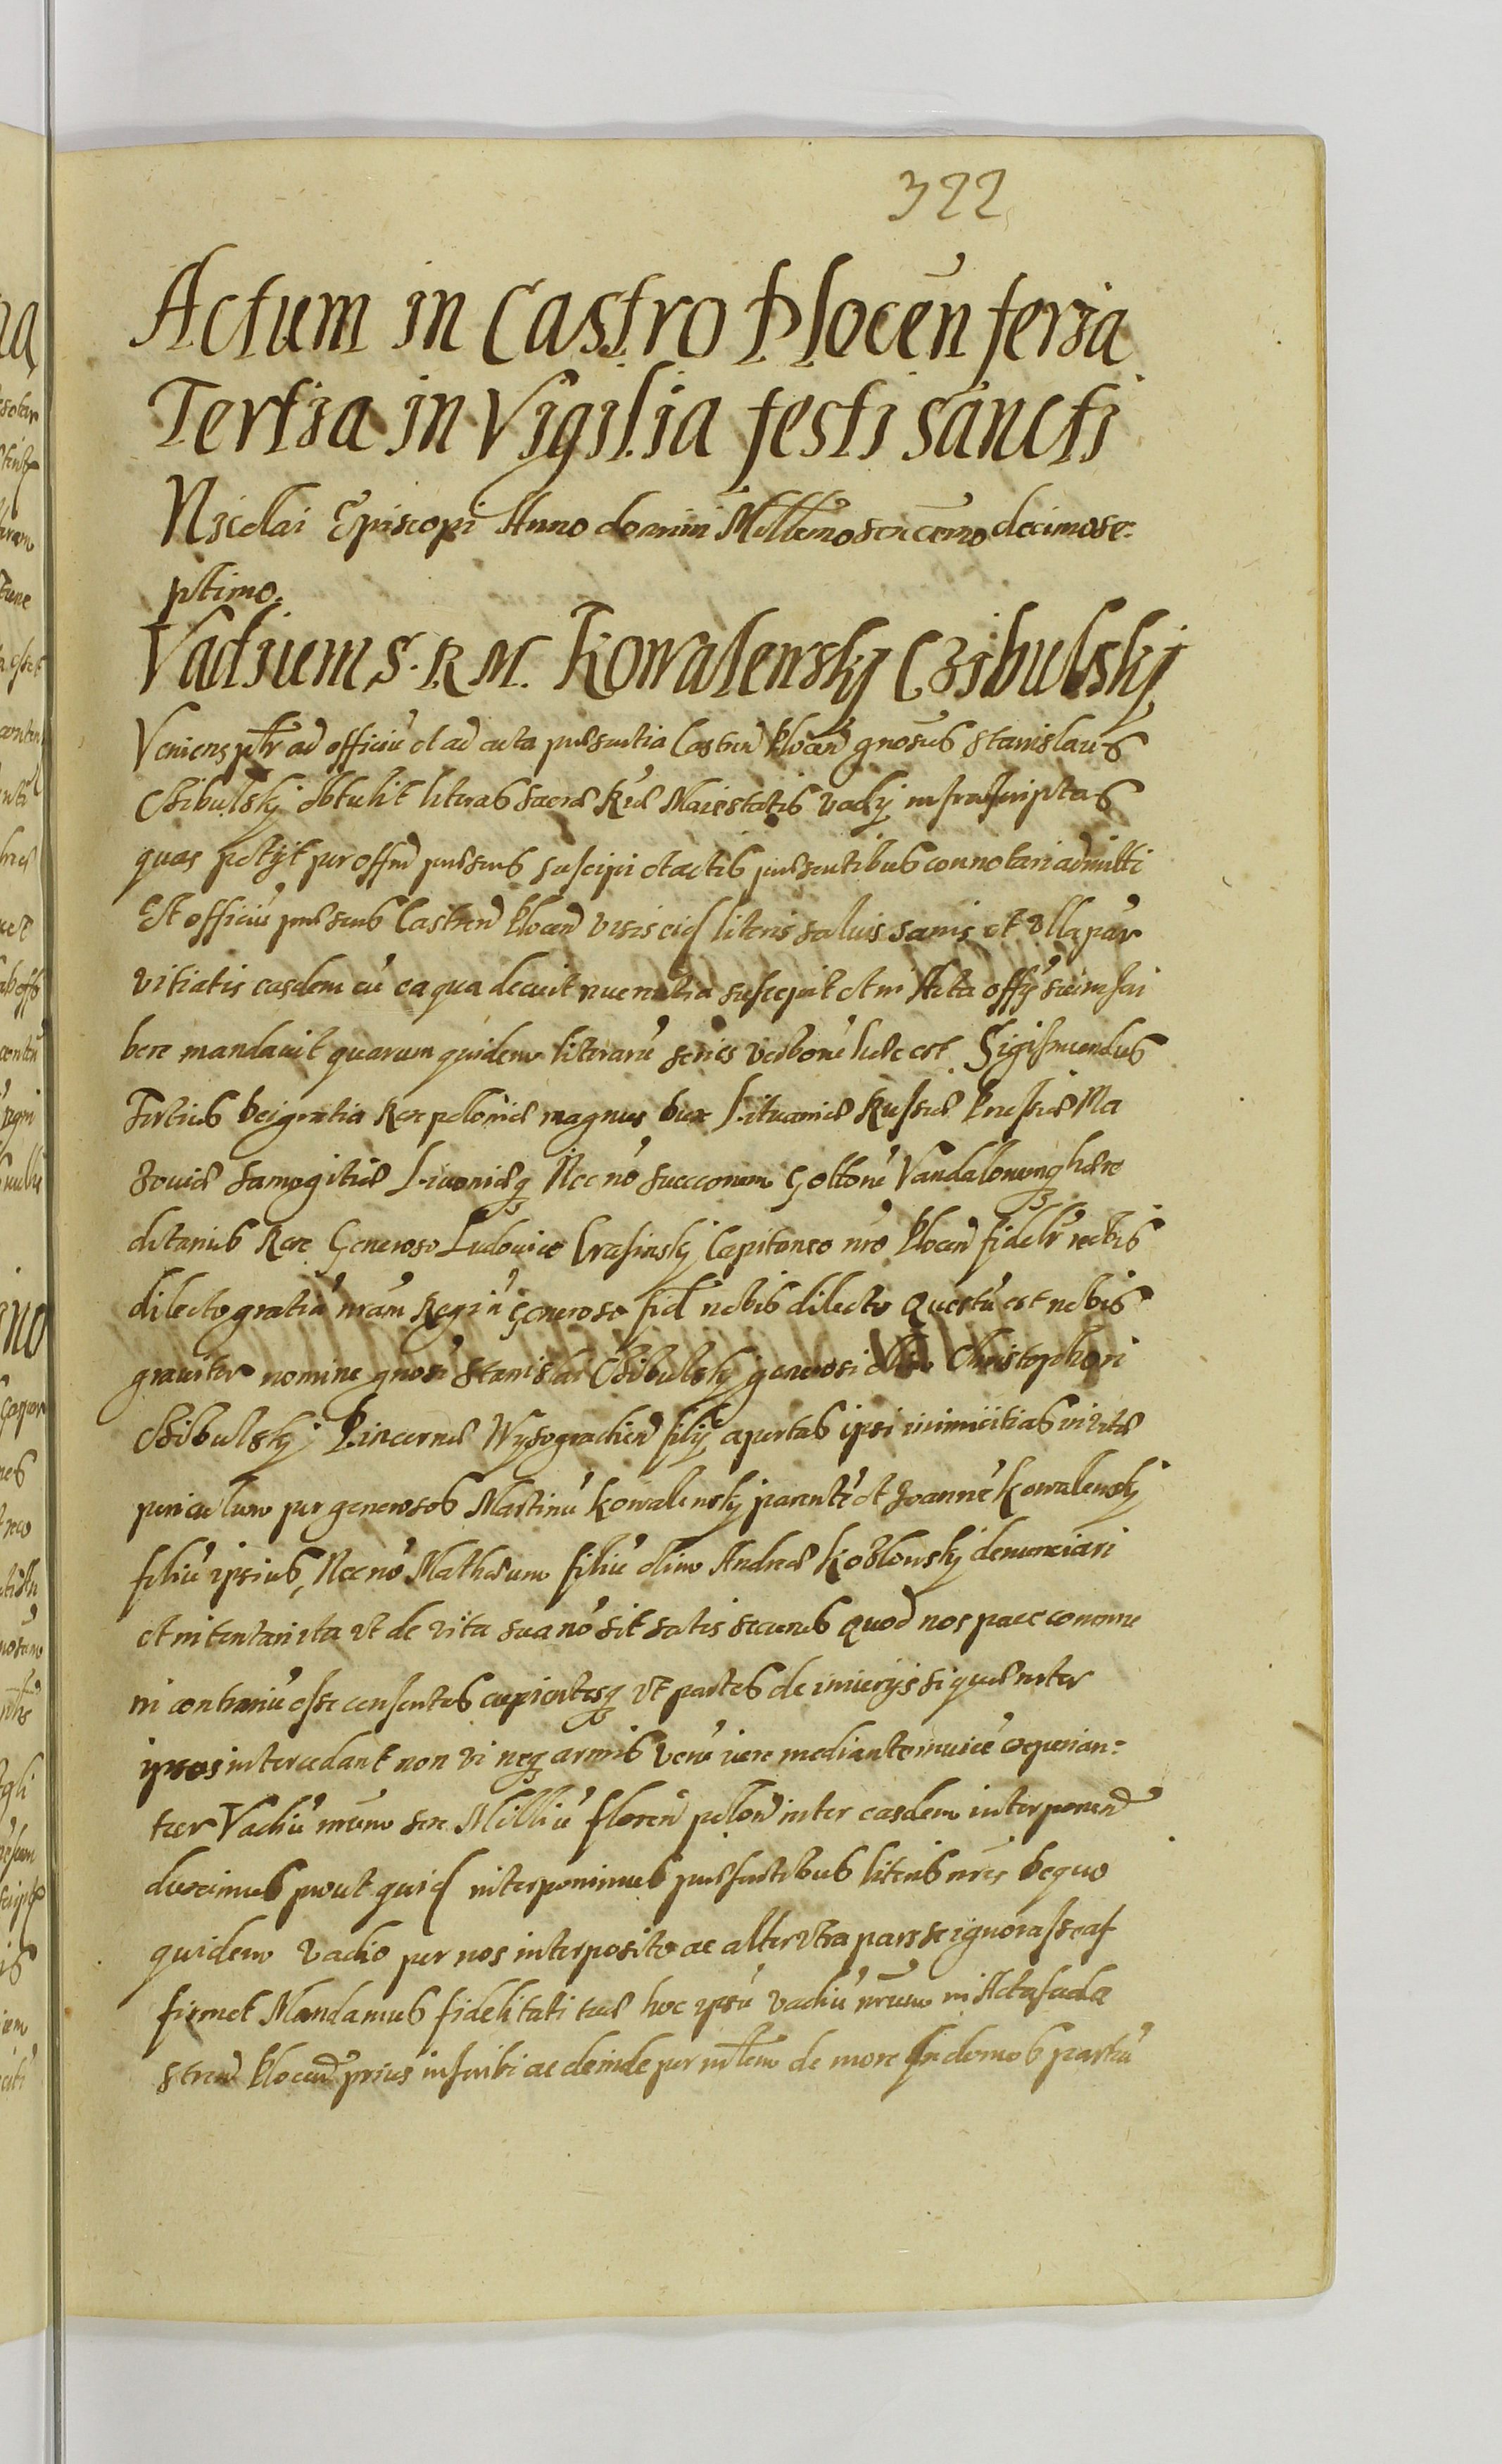 322
Actum in Castro Plocen̄ feria
Tertia in Vigilia festi sancti
Nicolai Episcopi Anno domini Millemo sexcemo decimose:
ptimo.
Vadium S. R. M. Kowalensky Czibulskj
Veniens ptr ad officiū et ad acta præsentia Castren̄ Plocen̄ gnosus Stanislaus
Czibulskj obtulit literas Sacræ Ræ Maiestatis vadij infrascriptas
quas petijt per offm præsens suscipi et actis præsentibus connotari admitti
Et officiū præsens Castren̄ Plocen̄ visis eisd literis saluis sanis et illa par
vitiatis easdem cū ea qua decuit reuerentia suscepit et in Acta offij sui inscri
bere mandauit quarum quidem literarū series verborū hæc est Sigismundus
Tertius Dei gratia Rex poloniæ magnus Dux Lituaniæ Russiæ Prussiæ Ma
zouiæ Samogitiæ Liuoniæq Nec nō Sueccorum Gottorū Vandalorumq hære
ditarius Rex Generoso Ludouico Crasinskj Capitaneo nrō Plocen̄ fidelr nobis
dilecto gratiā nrām Regiā Generose fid nobis dilecte Questū est nobis
grauiter nomine gnosi Stanislai Czibulskj generosi olim Christophori
Czibulskj Pincernæ Wyszogradien̄ filij apertas ipsi inimicitias in vitæ
periculum per generosos Martinū Kowalenskj parentē et Joannē Kowalenskj
filiū ipsius, Nec nō Mathæum filiū olim Andreæ Kozlowskj denunciari
et intentari ita vt de vita sua nō sit satis securus Quod nos pace commu
ni contrariū esse censentes cupientesq vt partes de iniurijs si quæ inter
ipsos intercedant non vi neq armis verū iure mediante inuicē experian:
tur Vadiū nrūm sex Milliū floren̄ polon̄ inter easdem interponend
duximus prout quid interponimus præsentibus literis nris De quo
quidem vadio per nos interposito ne alterutra pars se ignorasse af
firmet Mandamus fidelitati tuæ hoc ipsū vadiū nrūm in Acta sua Ca
stren̄ Plocen̄ prius inscribi ac deinde per mlem de more in domos partiū